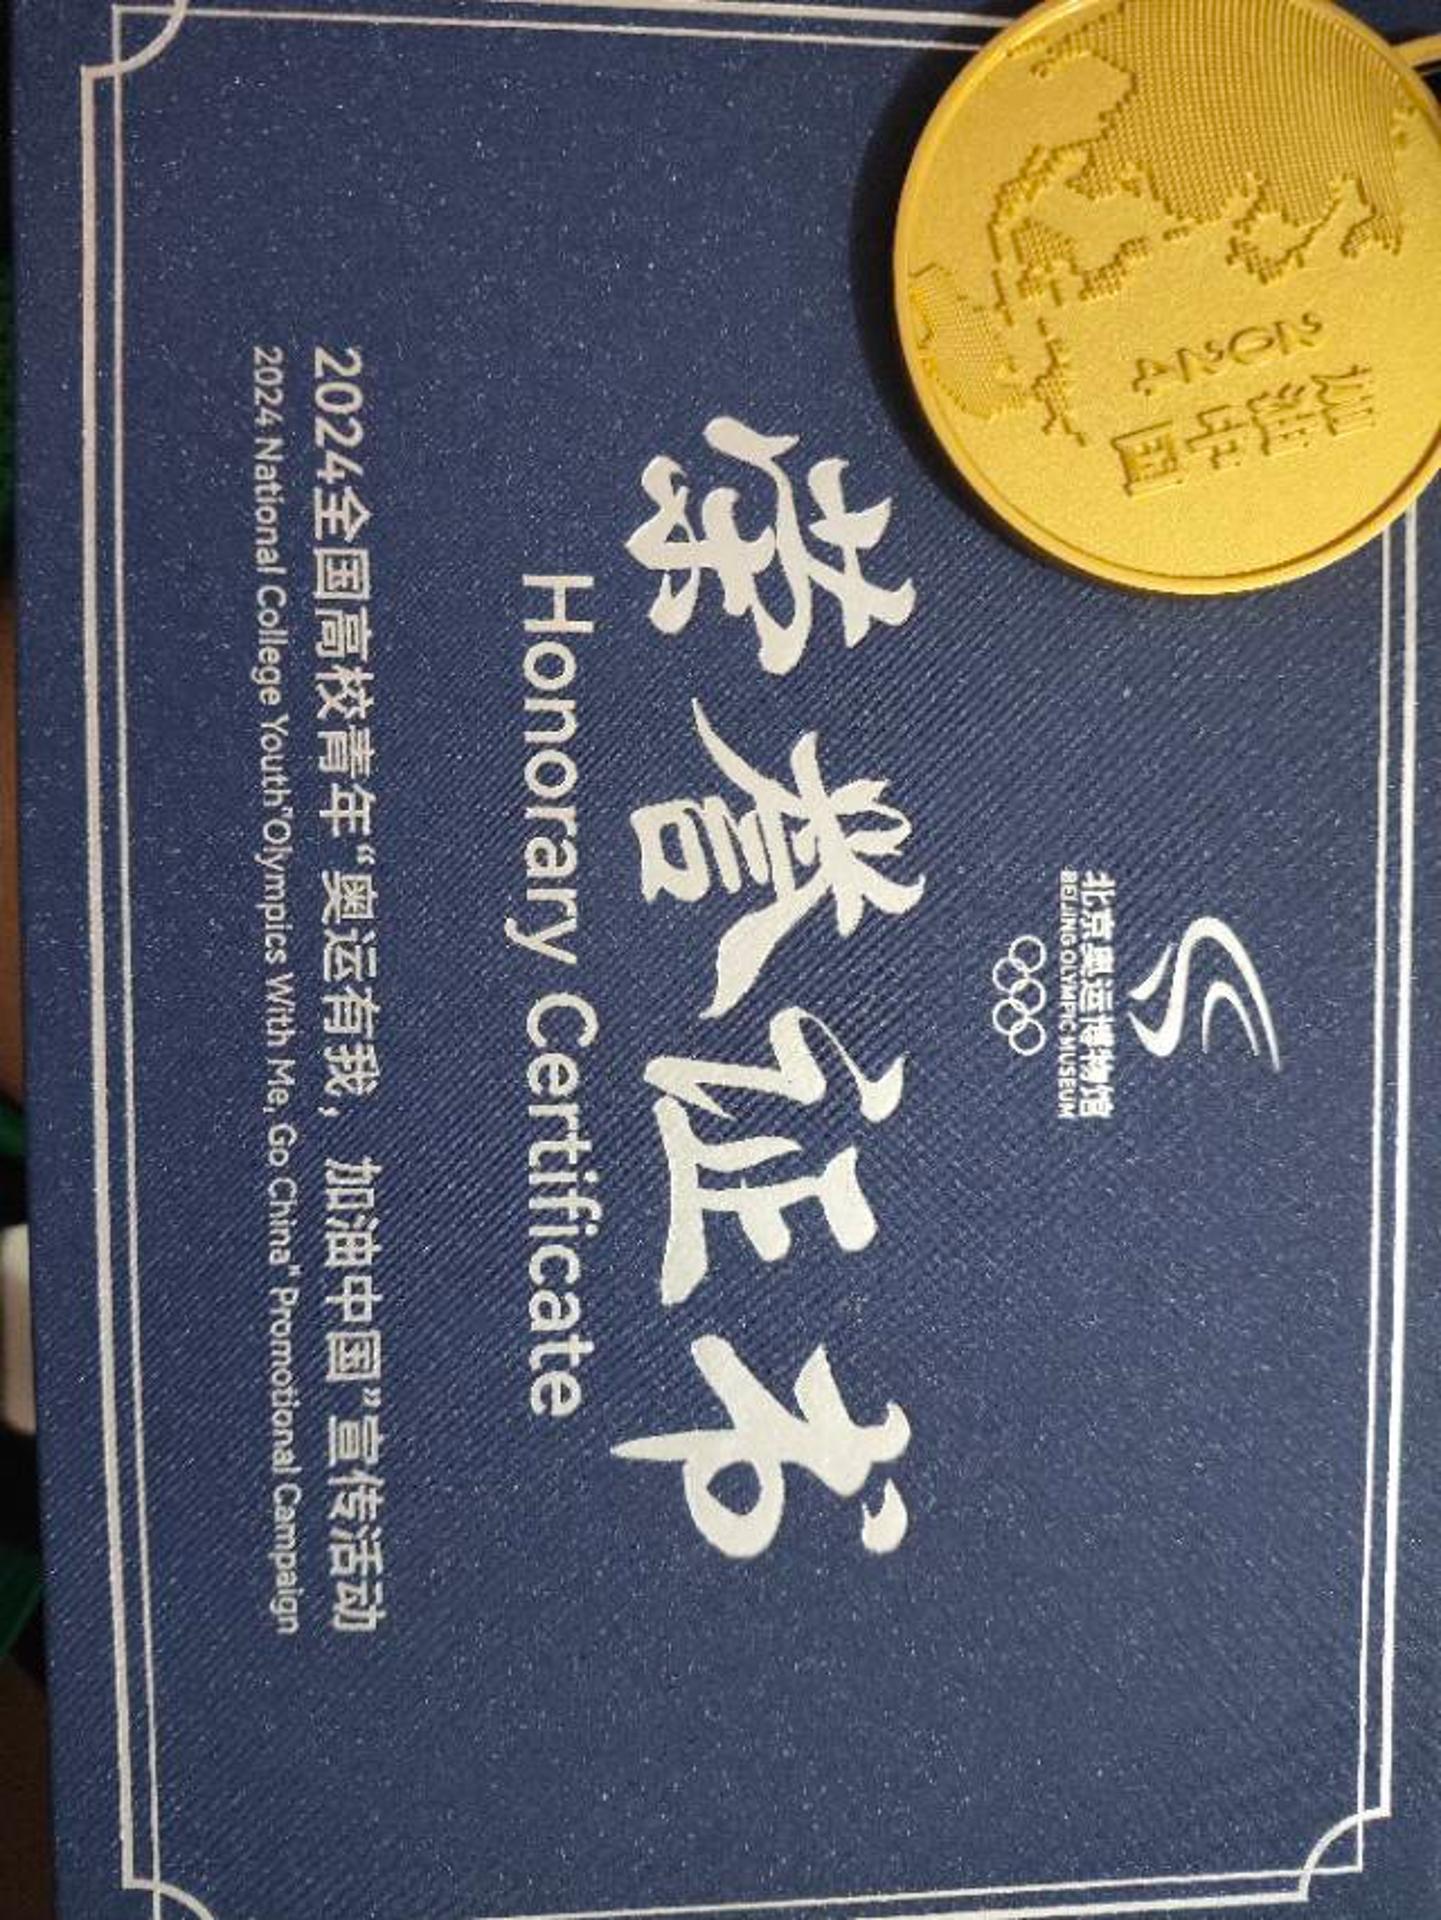 北京奥运博物馆
BEIJING OLYMPIC MUSEUM
荣誉证书
Honorary Certificate
2024全国高校青年“奥运有我，加油中国”宣传活动
2024 National College Youth"Olympics With Me, Go China" Promotional Campaign
2024
加油中国